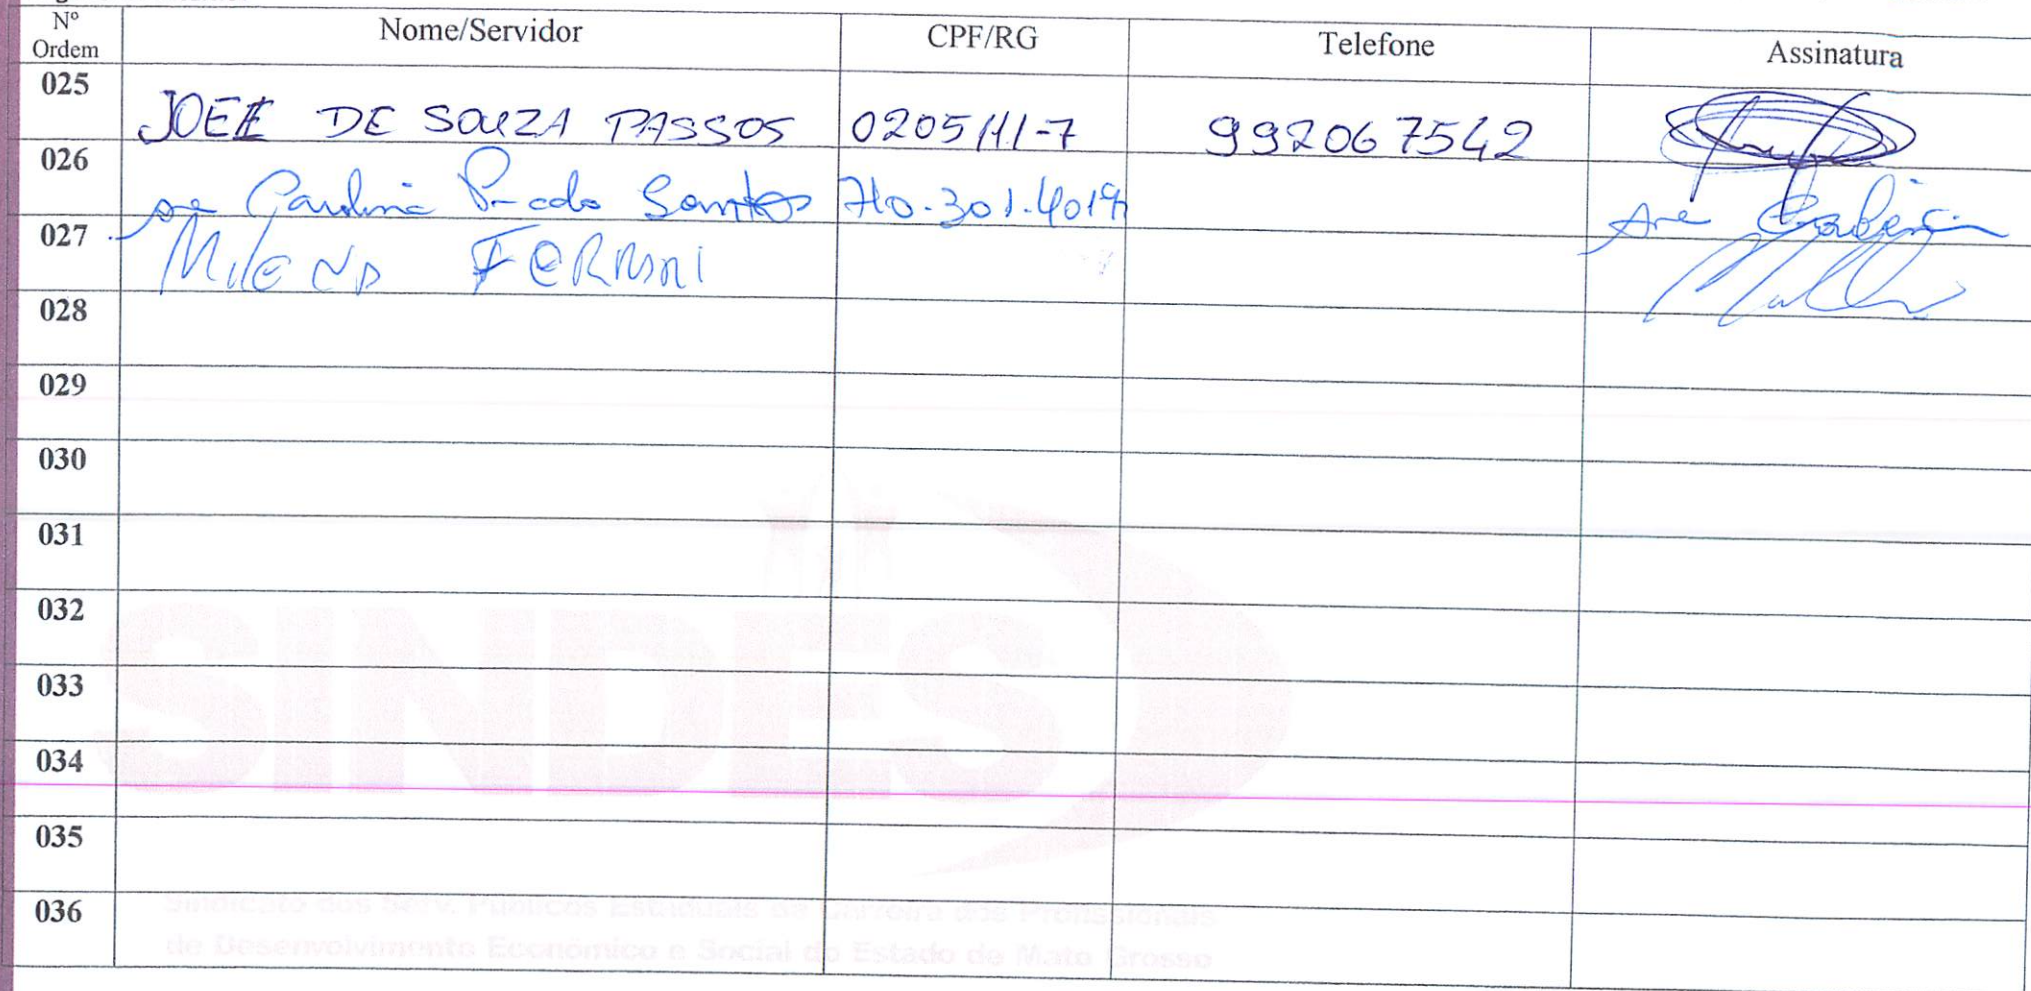 Nº Ordem Nome/Servidor CPF/RG Telefone Assinatura
025 JOEL DE SOUZA PASSOS 0205111-7 992067542
026 Carolina Prado Santos 710.301.401 Ana Carolina
027 MILENA FERRARI
028
029
030
031
032
033
034
035
036
SINDES
Sindicato dos Serv. Públicos Estaduais da Carreira dos Profissionais
de Desenvolvimento Econômico e Social do Estado de Mato Grosso